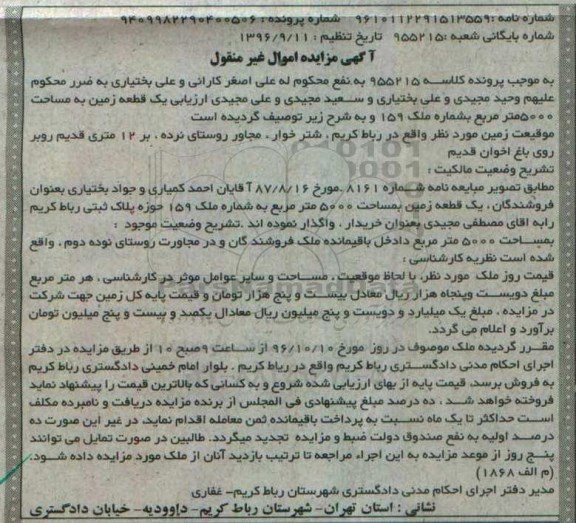 شماره نامه :۹۶۱۰۱۱۲۲۹۱۵۱۳۵۵۹ شماره پرونده : ۹۴۰۹۹۸۲۲۹۰۴۰۰۵۰۶
شماره بایگانی شعبه :۹۵۵۲۱۵ تاریخ تنظیم : ۱۳۹۶/۹/۱۱
آگهی مزایده اموال غیر منقول
به موجب پرونده کلاسه ۹۵۵۲۱۵ به نفع محکوم له علی اصغر کارانی و علی بختیاری به ضرر محکوم
علیهم وحید مجیدی و علی بختیاری و سعید مجیدی و علی مجیدی ارزیابی یک قطعه زمین به مساحت
۵۰۰۰متر مربع بشماره ملک ۱۵۹ و به شرح زیر توصیف گردیده است
موقیعت زمین مورد نظر واقع در رباط کریم ، شتر خوار ، مجاور روستای نرده ، بر ۱۲ متری قدیم روبر
روی باغ اخوان قدیم
تشریح وضعیت مالکیت :
مطابق تصویر مبایعه نامه شماره ۸۱۶۱ .مورخ ۸۷/۸/۱۶ آ قایان احمد کمیاری و جواد بختیاری بعنوان
فروشندگان ، یک قطعه زمین بمساحت ۵۰۰۰ متر مربع به شماره ملک ۱۵۹ حوزه پلاک ثبتی رباط کریم
رابه اقای مصطفی مجیدی بعنوان خریدار ، واگذار نموده اند .تشریح وضعیت موجود :
بمساحت ۵۰۰۰ متر مربع دادخل باقیمانده ملک فروشند گان و در مجاورت روستای نوده دوم ، واقع
شده است نظریه کارشناسی :
قیمت روز ملک مورد نظر، با لحاظ موقعیت ، مساحت و سایر عوامل موثر در کارشناسی ، هر متر مربع
مبلغ دویست وپنجاه هزار ریال معادل بیست و پنج هزار تومان و قیمت پایه کل زمین جهت شرکت
در مزایده ، مبلغ یک میلیارد و دویست و پنج میلیون ریال معادال یکصد و بیست و پنج میلیون تومان
برآورد و اعلام می گردد.
مقرر گردیده ملک موصوف در روز مورخ ۹۶/۱۰/۱۰ از ساعت ۹صبح ۱۰ از طریق مزایده در دفتر
اجرای احکام مدنی دادگستری رباط کریم واقع در رباط کریم . بلوار امام خمینی دادگستری رباط کریم
به فروش برسد، قیمت پایه از بهای ارزیابی شده شروع و به کسانی که بالاترین قیمت را پیشنهاد نماید
فروخته خواهد شد ، ده درصد مبلغ پیشنهادی فی المجلس از برنده مزایده دریافت و نامبرده مکلف
است حداکثر تا یک ماه نسبت به پرداخت باقیمانده ثمن معامله اقدام نماید، در غیر این صورت ده
درصد اولیه به نفع صندوق دولت ضبط و مزایده تجدید میگردد. طالبین در صورت تمایل می توانند
پنج روز از موعد مزایده به این اجراء مراجعه تا ترتیب بازدید آنان از ملک مورد مزایده داده شود.
(م الف ۱۸۶۸)
مدیر دفتر اجرای احکام مدنی دادگستری شهرستان رباط کریم- غفاری
نشانی : استان تهران- شهرستان رباط کریم- داوودیه- خیابان دادگستری